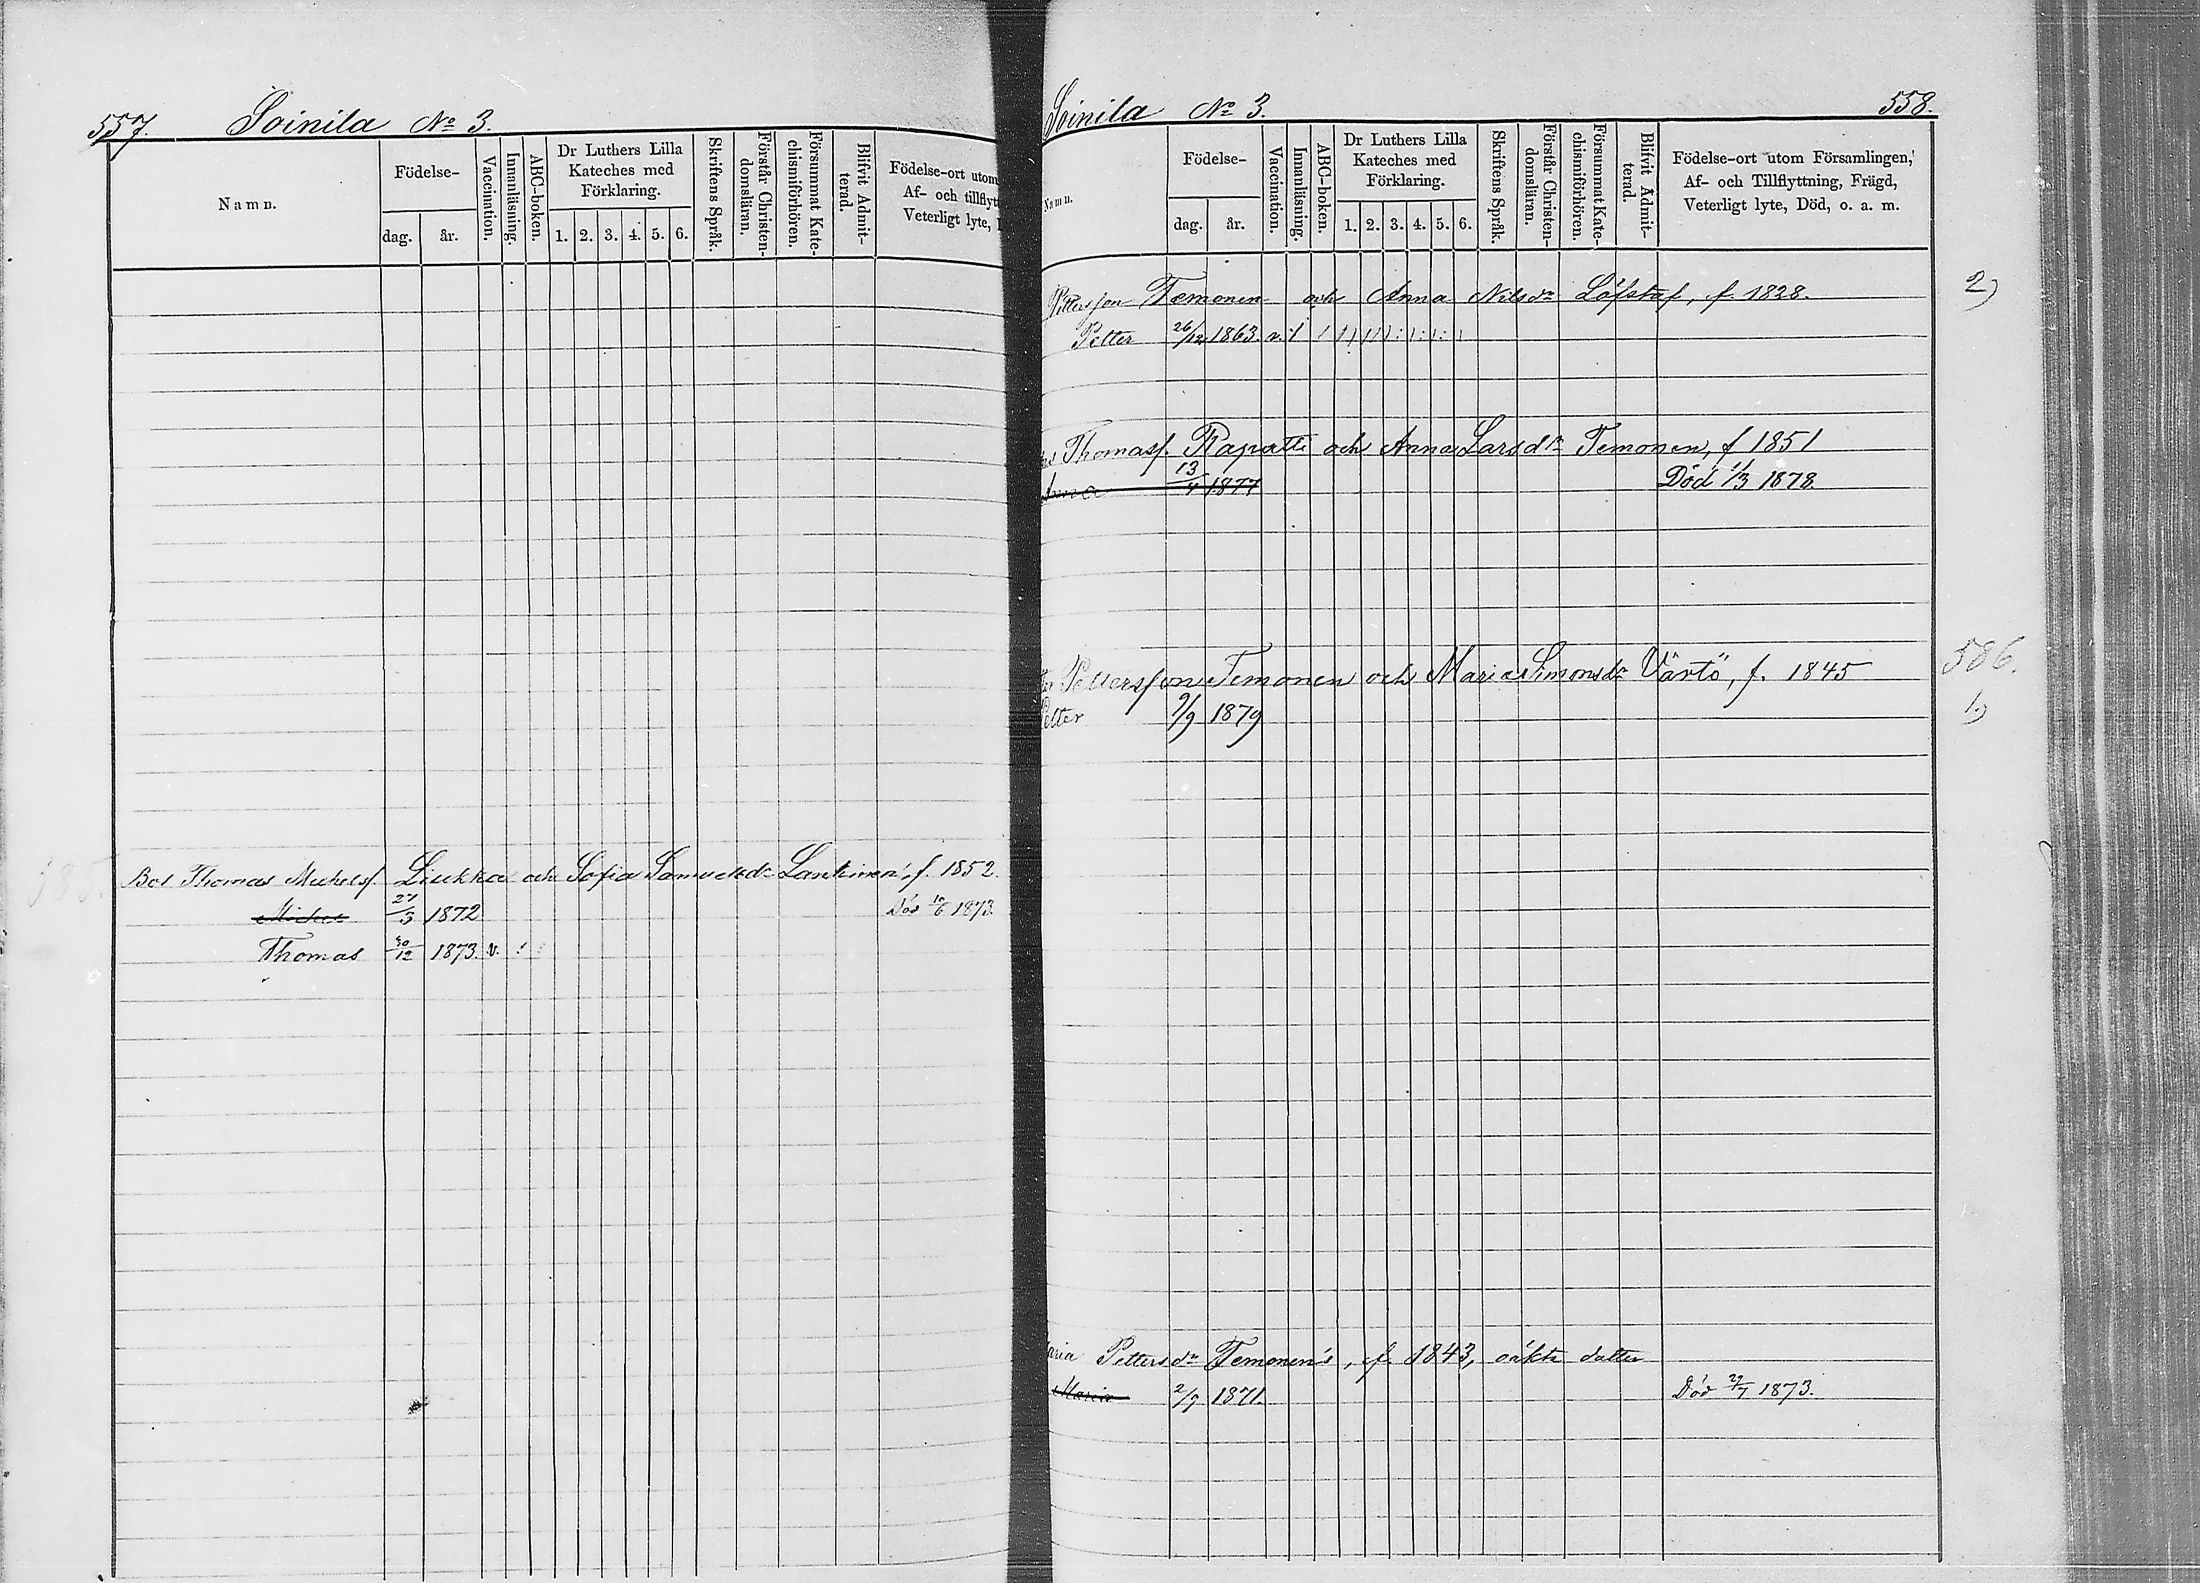 557. Soinila No 3.
Namn.
Födelse-
dag. år.
Vaccination.
Innanläsning.
ABC-boken.
Dr Luthers Lilla Kateches med Förklaring.
1. 2. 3. 4. 5. 6.
Skriftens Språk.
Förstår Christen-domsläran.
Försummat Kate-chismiförhören.
Blifvit Admit-terad.
Födelse-ort utom
Af- och tillflytt
Veterligt lyte,
Thomas Michelsf. Liukka och Sofia Samuelsdr Lankinen, f. 1852.
Michel 27/3 1872 Död 10/6 1873.
Thomas 30/12 1873. v.
Soinila No 3. 558.
Namn.
Födelse-
dag. år.
Vaccination.
Innanläsning.
ABC-boken.
Dr Luthers Lilla Kateches med Förklaring.
1. 2. 3. 4. 5. 6.
Skriftens Språk.
Förstår Christen-domsläran.
Försummat Kate-chismiförhören.
Blifvit Admit-terad.
Födelse-ort utom Församlingen,
Af- och Tillflyttning, Frägd,
Veterligt lyte, Död, o. a. m.
Pettersson Temonen och Anna Nilsdr Löfstaf, f. 1828. 2)
Petter 26/12 1863. v.
Thomasf. Rapatti och Anna Larsdr Temonen, f 1851
Anna 13/4 1877 Död 11/3 1878.
Pettersson Temonen och Maria Simonsdr Värtö, f. 1845 586.
Petter 9/9 1879 1.)
Maria Pettersdr Temonen's, f. 1843, oäkta dotter
Maria 2/9 1871. Död 29/7 1873.